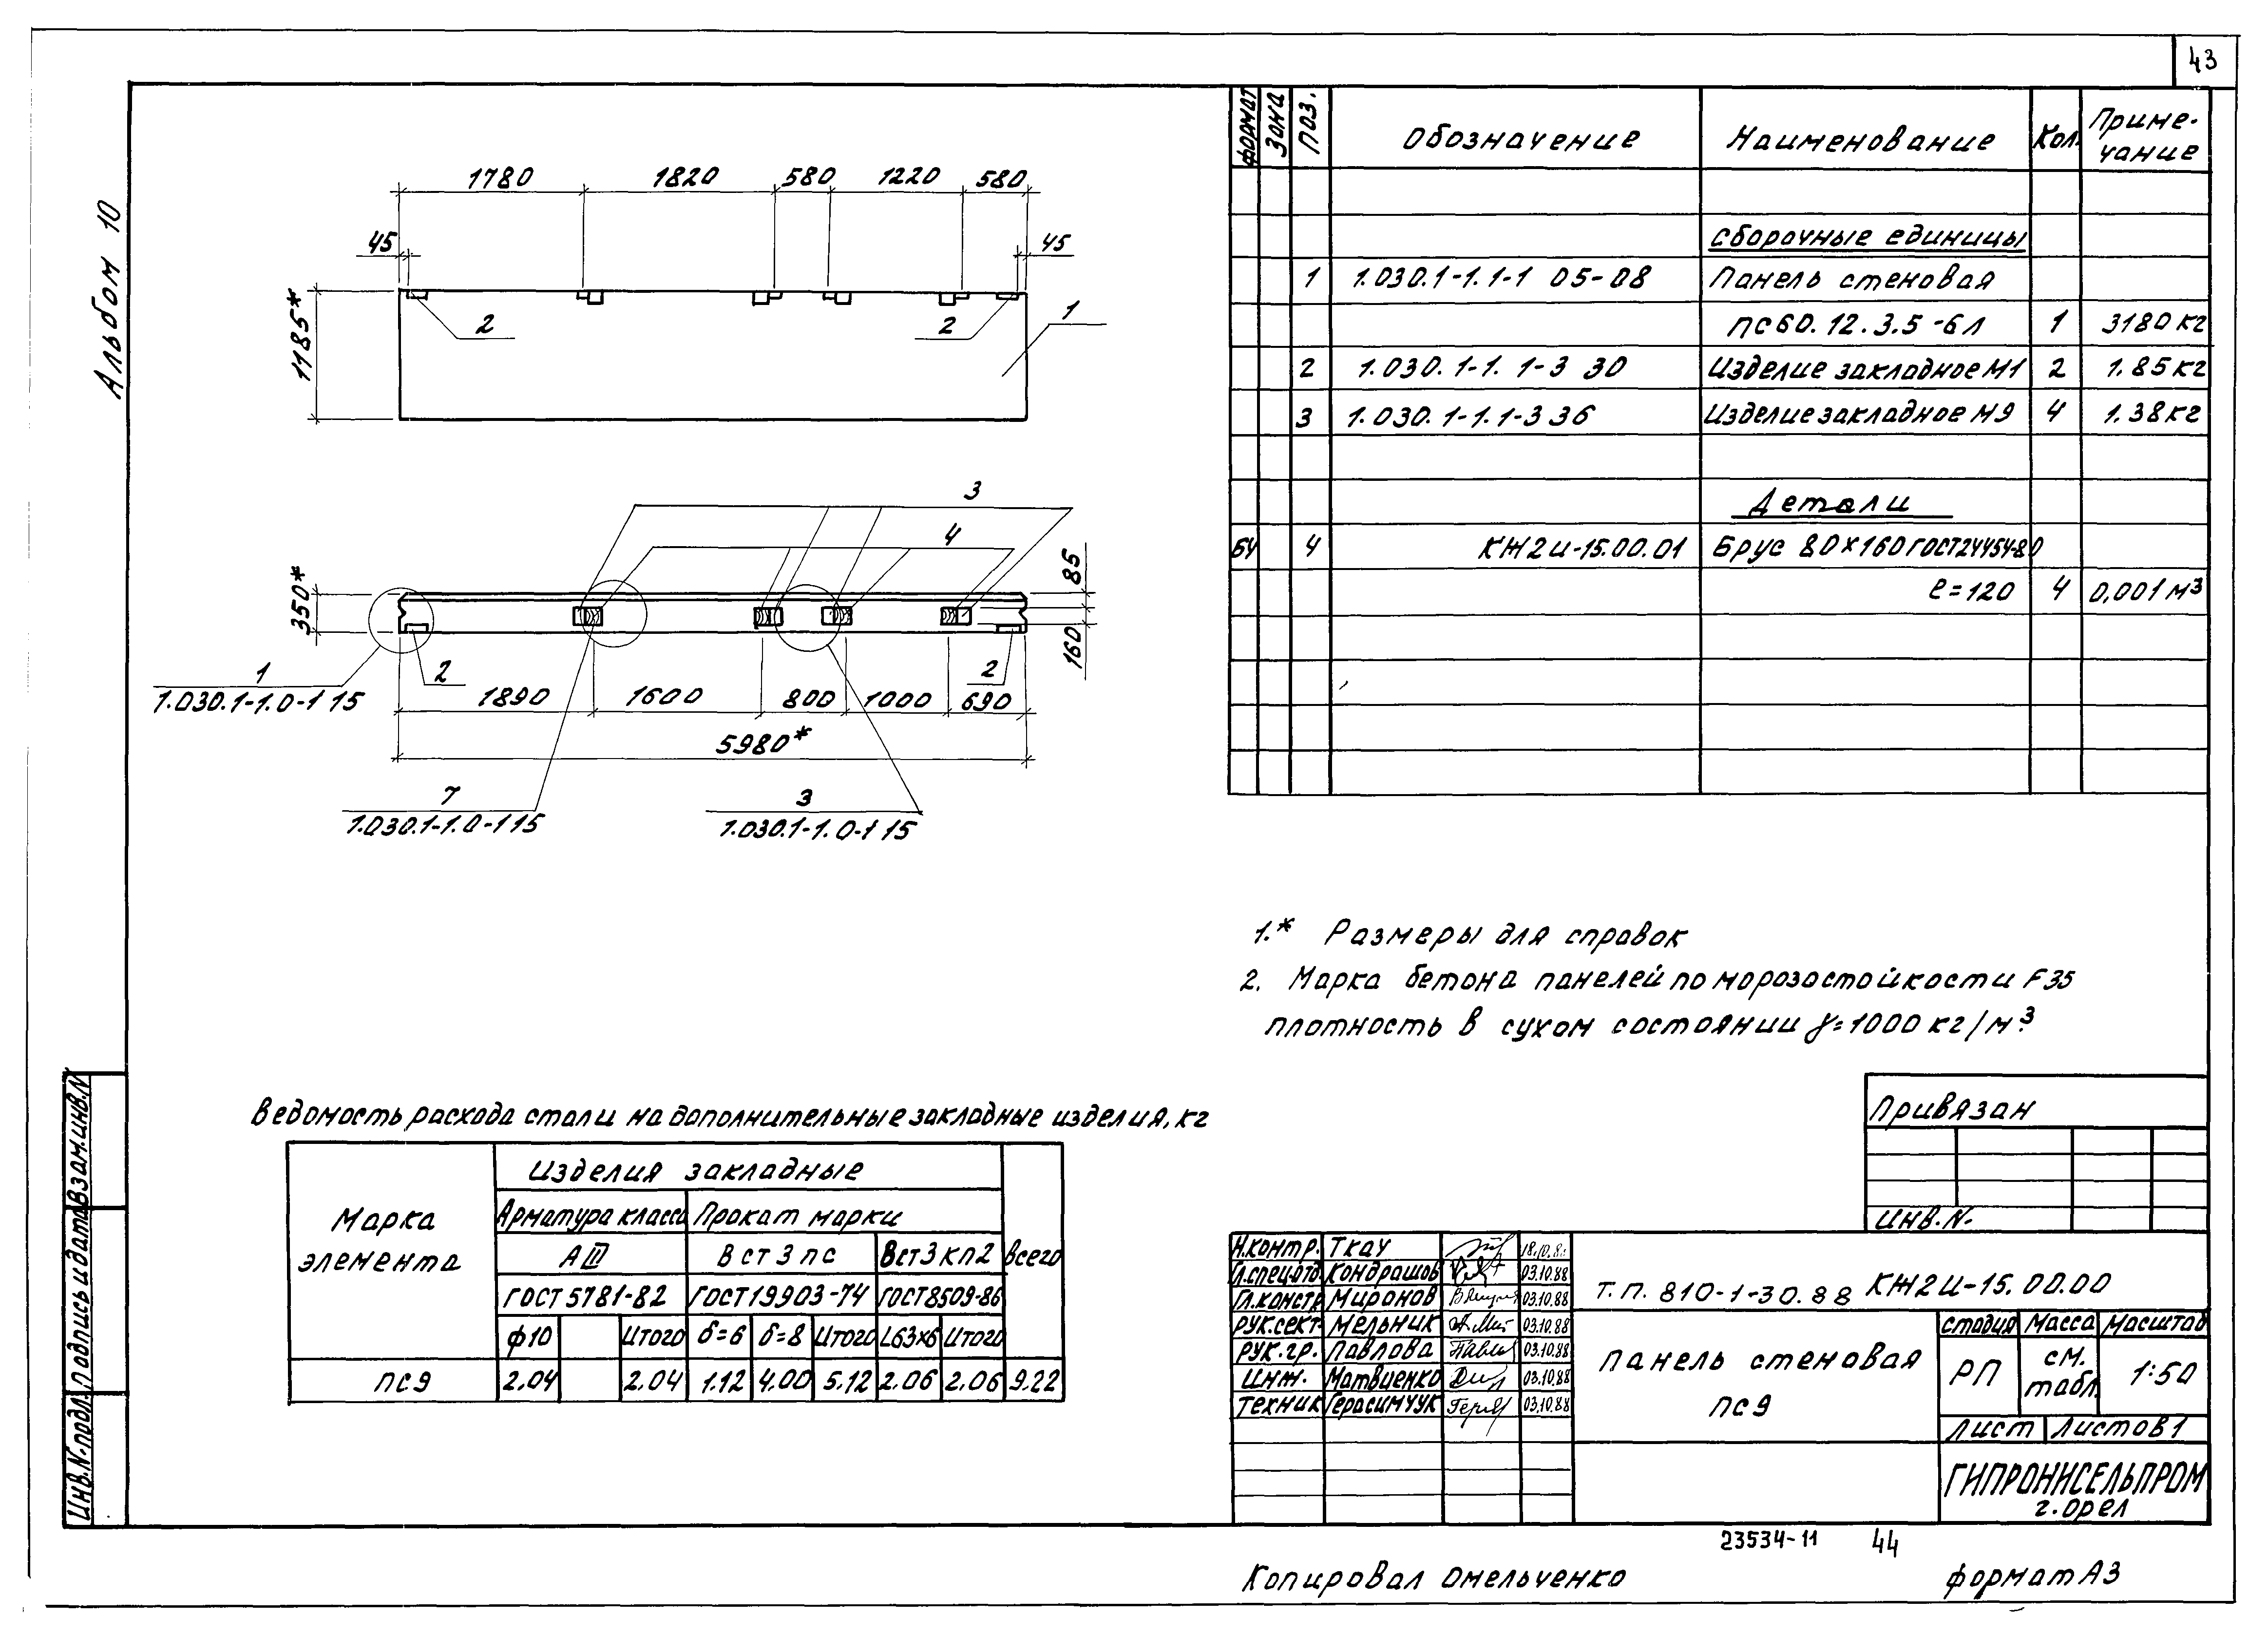 43
Альбом 10
1780 1820 580 1220 580
45 45
1185*
2 2 1
3
4
350*
85
160
2 2
1
1.030.1-1.0-1 15
1890 1600 800 1000 690
5980*
7
1.030.1-1.0-1 15
3
1.030.1-1.0-1 15
формат Зона Поз. Обозначение Наименование Кол. Приме-
чание
Сборочные единицы
1 1.030.1-1.1-1 05-08 Панель стеновая
ПС60.12.3.5-6Л 1 3180 кг
2 1.030.1-1.1-3 30 Изделие закладное М1 2 1.85 кг
3 1.030.1-1.1-3 36 Изделие закладное М9 4 1.38 кг
Детали
БЧ 4 КЖ2И-15.00.01 Брус 80×160 ГОСТ24454-80
ℓ=120 4 0,001 м³
1.* Размеры для справок
2. Марка бетона панелей по морозостойкости F35
плотность в сухом состоянии γ=1000 кг/м³
Ведомость расхода стали на дополнительные закладные изделия, кг
Марка
элемента
Изделия закладные
Всего
Арматура класса Прокат марки
АIII ВСт3пс ВСт3кп2
ГОСТ5781-82 ГОСТ19903-74 ГОСТ8509-86
ф10 Итого δ=6 δ=8 Итого L63×6 Итого
ПС9 2.04 2.04 1.12 4.00 5.12 2.06 2.06 9.22
Привязан
Инв.N
Н.контр. Ткач 18.10.8
Гл.спец.отд. Кондрашов 03.10.88
Гл.констр. Миронов 03.10.88
Рук.сект. Мельник 03.10.88
Рук.гр. Павлова 03.10.88
Инж. Матвиенко 03.10.88
Техник Герасимчук 03.10.88
Т.П. 810-1-30.88 КЖ2И-15.00.00
Панель стеновая
ПС9
Стадия Масса Масштаб
РП см.
табл. 1:50
Лист Листов 1
ГИПРОНИСЕЛЬПРОМ
г. Орел
Взам.инв.N
Подпись и дата
Инв.N подл.
23534-11 44
Копировал Омельченко
формат А3